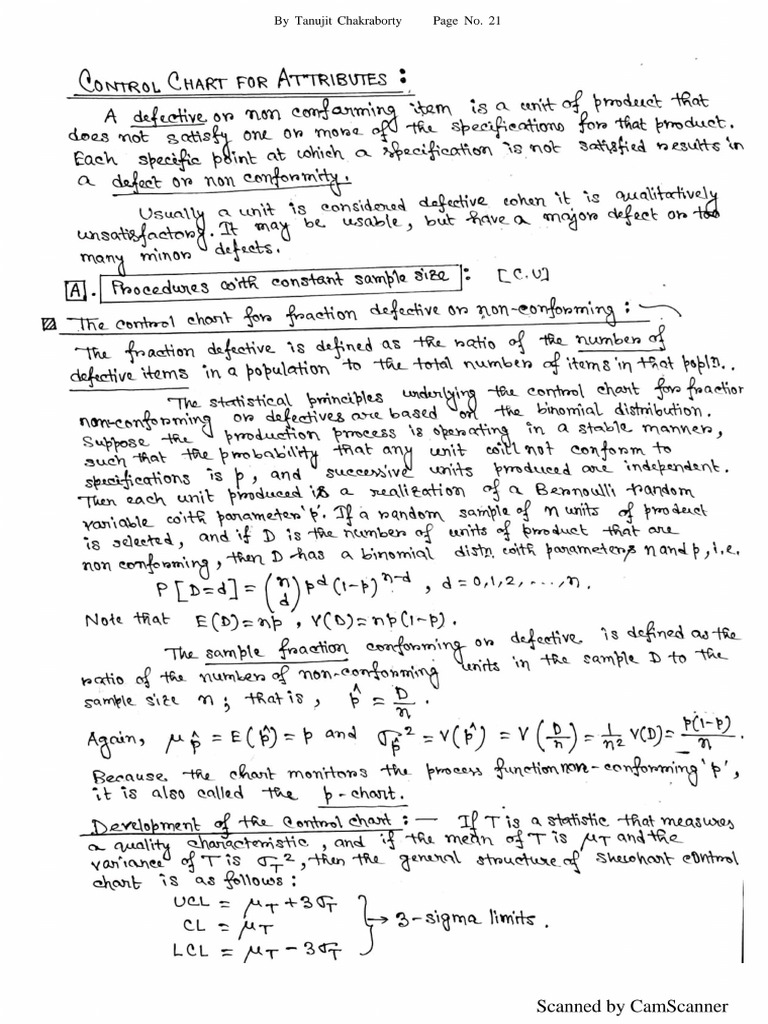 By Tanujit Chakraborty Page No. 21
CONTROL CHART FOR ATTRIBUTES :
A defective or non conforming item is a unit of product that
does not satisfy one or more of the specifications for that product.
Each specific point at which a specification is not satisfied results in
a defect or non conformity.
Usually a unit is considered defective when it is qualitatively
unsatisfactory. It may be usable, but have a major defect or too
many minor defects.
[A]. Procedures with constant sample size : [C.U]
The control chart for fraction defective or non-conforming :
The fraction defective is defined as the ratio of the number of
defective items in a population to the total number of items in that popln..
The statistical principles underlying the control chart for fraction
non-conforming or defectives are based on the binomial distribution.
Suppose the production process is operating in a stable manner,
such that the probability that any unit will not conform to
specifications is p, and successive units produced are independent.
Then each unit produced is a realization of a Bernoulli random
variable with parameter 'p'. If a random sample of n units of product
is selected, and if D is the number of units of product that are
non conforming, then D has a binomial distn. with parameters n and p, i.e.
P[D=d] = (n d) p^d (1-p)^{n-d}, d = 0,1,2, ..., n.
Note that E(D)=np, V(D)=np(1-p).
The sample fraction conforming or defective is defined as the
ratio of the number of non-conforming units in the sample D to the
sample size n; that is, p̂ = D/n.
Again, μ_p̂ = E(p̂) = p and σ_p̂² = V(p̂) = V(D/n) = 1/n² V(D) = p(1-p)/n.
Because the chart monitors the process function non-conforming 'p',
it is also called the p-chart.
Development of the control chart : — If T is a statistic that measures
a quality characteristic, and if the mean of T is μ_T and the
variance of T is σ_T², then the general structure of Shewhart control
chart is as follows:
UCL = μ_T + 3σ_T
CL = μ_T → 3-sigma limits.
LCL = μ_T - 3σ_T
Scanned by CamScanner